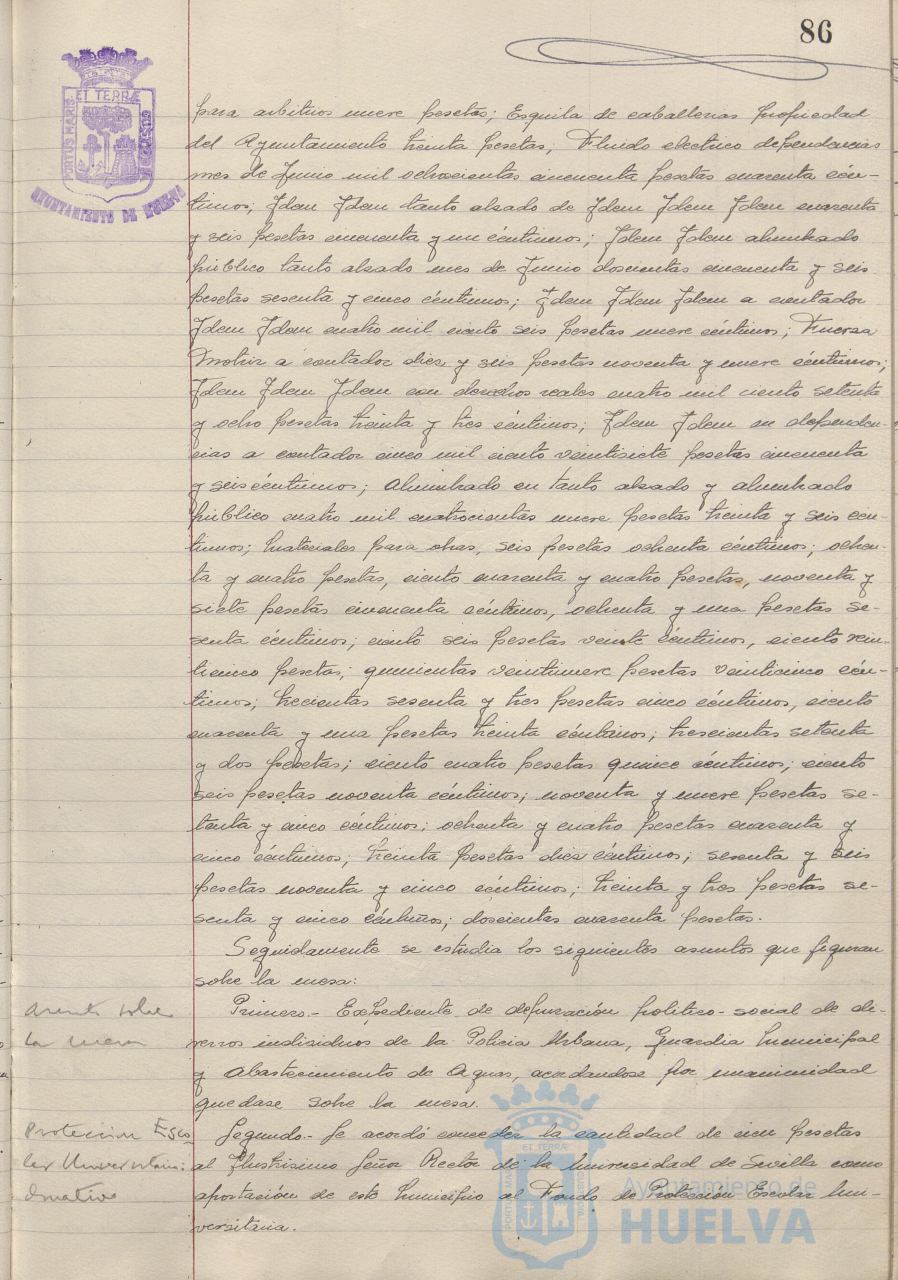 86
ET TERRÆ
PORTUS MARIS
CUSTODIA
AYUNTAMIENTO DE HUELVA
para arbitrios nueve pesetas; Esquila de caballerias propiedad
del Ayuntamiento treinta pesetas, Fluido electrico dependencias
mes de Junio mil ochocientas cincuenta pesetas cuarenta cén-
timos; Idem Idem tanto alzado de Idem Idem Idem cuarenta
y seis pesetas cincuenta y un céntimos; Idem Idem alumbrado
público tanto alzado mes de Junio doscientas cincuenta y seis
pesetas sesenta y cinco céntimos; Idem Idem Idem a contador
Idem Idem cuatro mil ciento seis pesetas nueve céntimos; Fuerza
Motriz a contador diez y seis pesetas noventa y nueve céntimos;
Idem Idem Idem con derechos reales cuatro mil ciento setenta
y ocho pesetas treinta y tres céntimos; Idem Idem en dependen-
cias a contador cinco mil ciento veintisiete pesetas cincuenta
y seis céntimos; Alumbrado en tanto alzado y alumbrado
público cuatro mil cuatrocientas nueve pesetas treinta y seis cén-
timos; Materiales para obras, seis pesetas ochenta céntimos; ochen-
ta y cuatro pesetas, ciento cuarenta y cuatro pesetas, noventa y
siete pesetas cincuenta céntimos, ochenta y una pesetas se-
senta céntimos; ciento seis pesetas veinte céntimos, ciento vein-
ticinco pesetas; quinientas veintinueve pesetas veinticinco cén-
timos; trecientas sesenta y tres pesetas cinco céntimos, ciento
cuarenta y una pesetas treinta céntimos; trescientas setenta
y dos pesetas; ciento cuatro pesetas quince céntimos; ciento
seis pesetas noventa céntimos; noventa y nueve pesetas se-
tenta y cinco céntimos; ochenta y cuatro pesetas cuarenta y
cinco céntimos; treinta pesetas diez céntimos; sesenta y seis
pesetas noventa y cinco céntimos; treinta y tres pesetas se-
senta y cinco céntimos; doscientas cuarenta pesetas.
Seguidamente se estudia los siguientes asuntos que figuran
sobre la mesa:
Asunto sobre
la mesa
Primero.- Expediente de depuración politico-social de di-
versos individuos de la Policia Urbana, Guardia Municipal
y Abastecimiento de Aguas, acordandose por unanimidad
quedase sobre la mesa.
Protección Esco
lar Universitaria:
Donativo
Segundo.- Se acordó conceder la cantidad de cien pesetas
al Ilustrisimo Señor Rector de la Universidad de Sevilla como
aportación de este Municipio al Fondo de Protección Escolar Uni-
versitaria.
ET TERRA
PORTUS MARIS
CUSTODIA
Ayuntamiento de
HUELVA